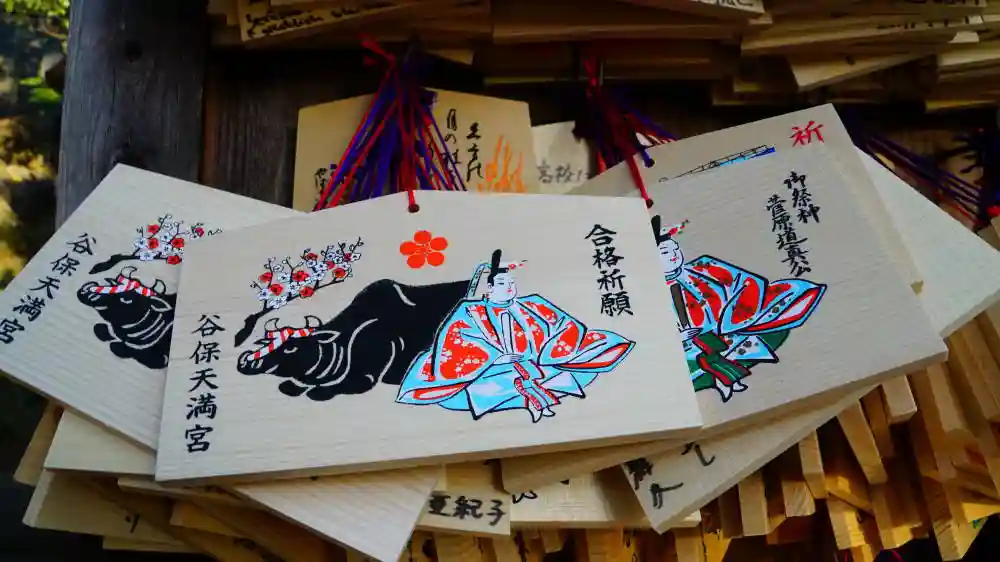 谷保天満宮
谷保天満宮
合格祈願
祈
御祭神
菅原道真公
月の社
高校に
亜紀子